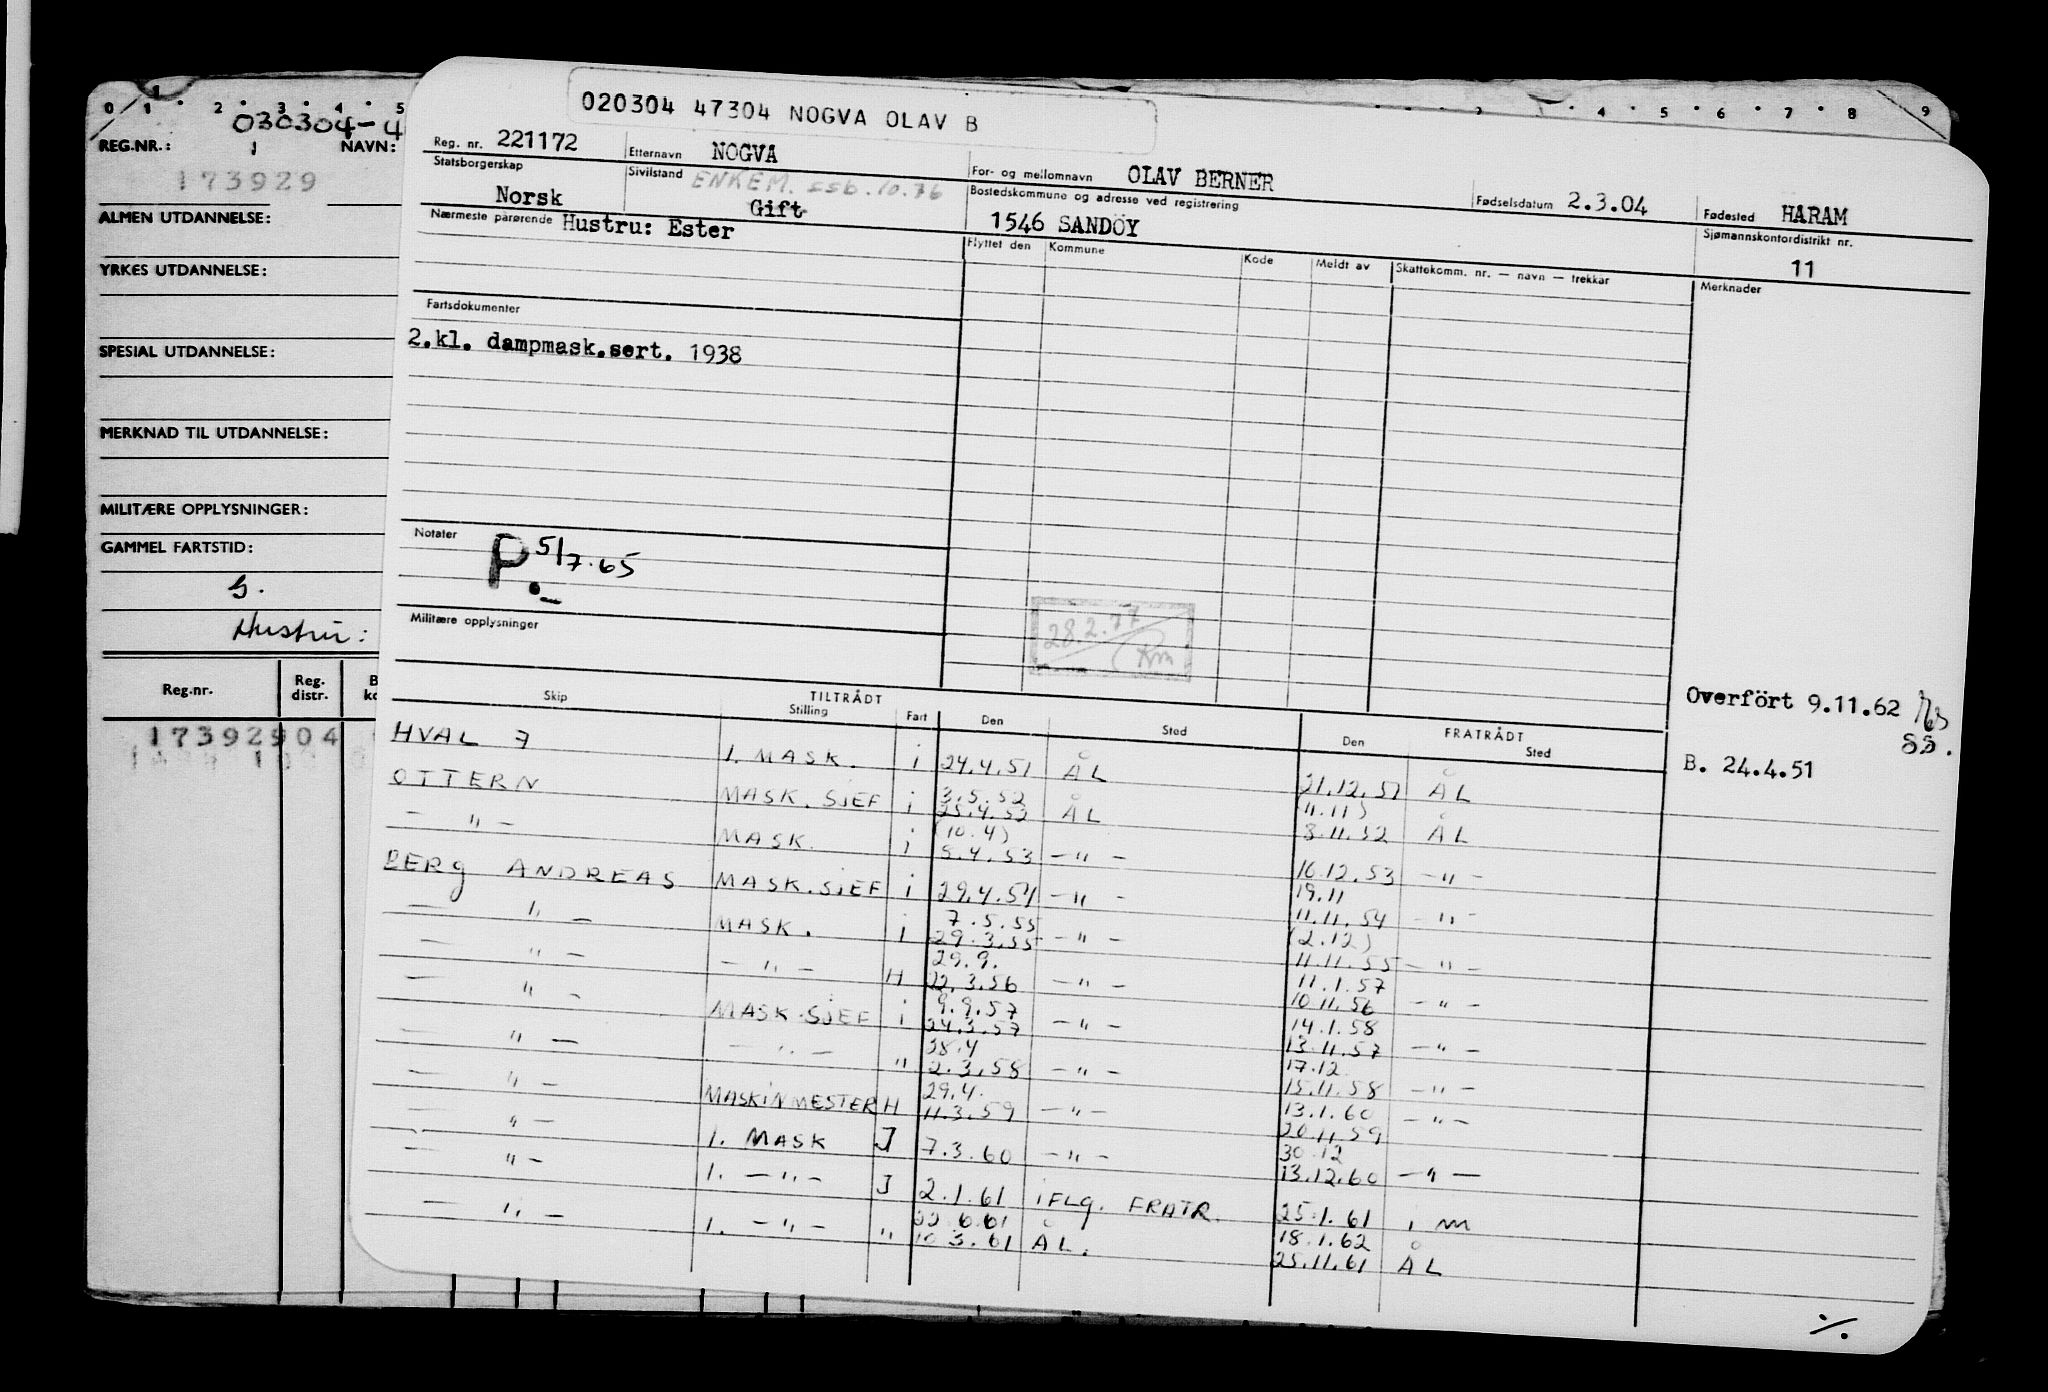 0 1 2 3 4 5
030304-4
REG.NR.: 1 NAVN:
173929
ALMEN UTDANNELSE:
YRKES UTDANNELSE:
SPESIAL UTDANNELSE:
MERKNAD TIL UTDANNELSE:
MILITÆRE OPPLYSNINGER:
GAMMEL FARTSTID:
Hustru:
Reg.nr. Reg. distr.
173929 04
4 5 6 7 8 9
020304 47304 NOGVA OLAV B
Reg. nr. 221172 Etternavn NOGVA For- og mellomnavn OLAV BERNER Fødselsdatum 2.3.04 Fødested HARAM
Statsborgerskap Norsk Sivilstand ENKEM. ssb. 10.76 Gift Bostedskommune og adresse ved registrering 1546 SANDÖY Sjømannskontordistrikt nr. 11
Nærmeste pårørende Hustru: Ester
Flyttet den Kommune Kode Meldt av Skattekomm. nr. — navn — trekkår Merknader
Fartsdokumenter
2.kl. dampmask.sert. 1938
Notater P. 5/7.65
28.2.77
Militære opplysninger
Overfört 9.11.62
SS.
B. 24.4.51
TILTRÅDT FRATRÅDT
Skip Stilling Fart Den Sted Den Sted
HVAL 7 1. MASK. i 24.4.51 ÅL 21.12.51 ÅL
OTTERN MASK.SJEF i 3.5.52 25.4.52 ÅL (4.11) 8.11.52 ÅL
— " — MASK. i (10.4) 5.4.53 — " — 16.12.53 — " —
BERG ANDREAS MASK.SJEF i 29.4.54 — " — 19.11 11.11.54 — " —
— " — MASK. i 7.5.55 29.3.55 — " — (2.12) 11.11.55 — " —
— " — — " — H 29.9. 22.3.56 — " — 11.1.57 10.11.56 — " —
— " — MASK.SJEF i 9.9.57 24.3.57 — " — 14.1.58 13.11.57 — " —
— " — — " — " 28.4 2.3.58 — " — 17.12. 15.11.58 — " —
— " — MASKINMESTER H 29.4. 11.3.59 — " — 13.1.60 20.11.59 — " —
— " — 1. MASK J 7.3.60 — " — 30.12 13.12.60 — " —
— " — 1. — " — J 2.1.61 IFLG. FRATR. 25.1.61 i m
— " — 1. — " — " 22.6.61 10.3.61 ÅL. 18.1.62 25.11.61 ÅL
./.